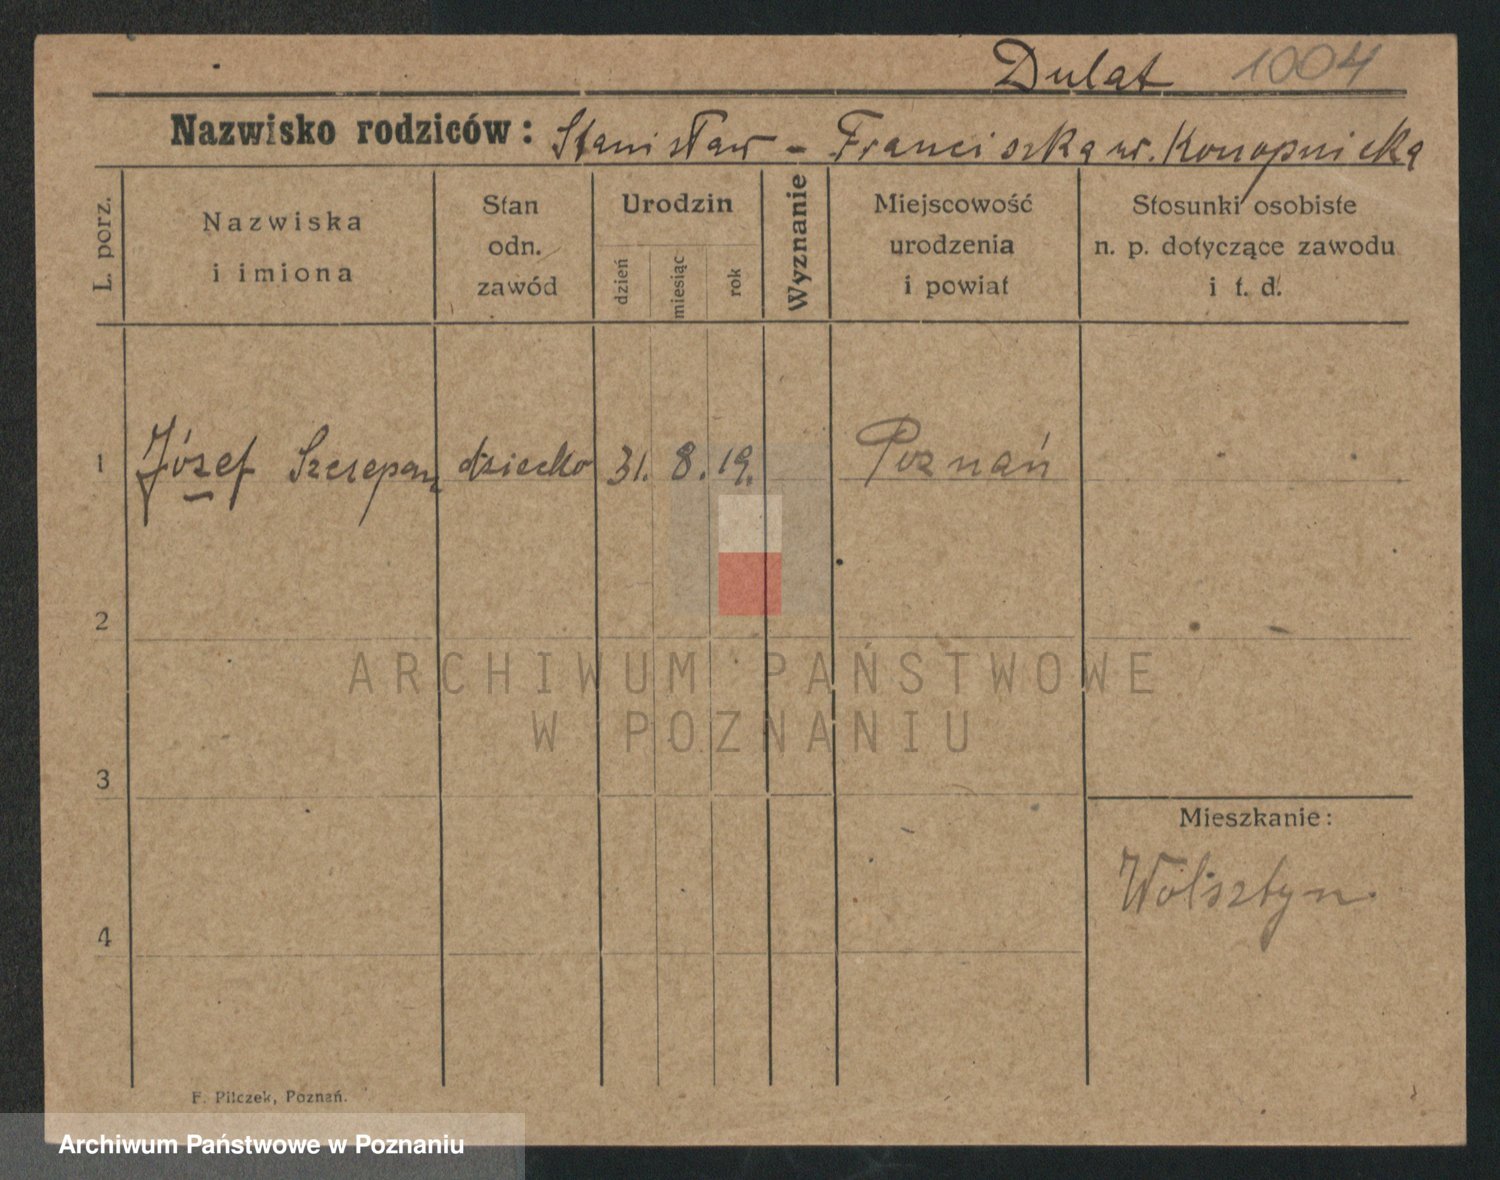 Dulat 1004
Nazwisko rodziców: Stanisław - Franciszka ur. Konopnicka
L. porz.
Nazwiska
i imiona
Stan
odn.
zawód
Urodzin
dzień
miesiąc
rok
Wyznanie
Miejscowość
urodzenia
i powiat
Stosunki osobiste
n. p. dotyczące zawodu
i t. d.
1 Józef Szczepan dziecko 31. 8. 19. Poznań
2
ARCHIWUM PAŃSTWOWE
W POZNANIU
3
Mieszkanie:
Wolsztyn.
4
F. Pilczek, Poznań.
Archiwum Państwowe w Poznaniu